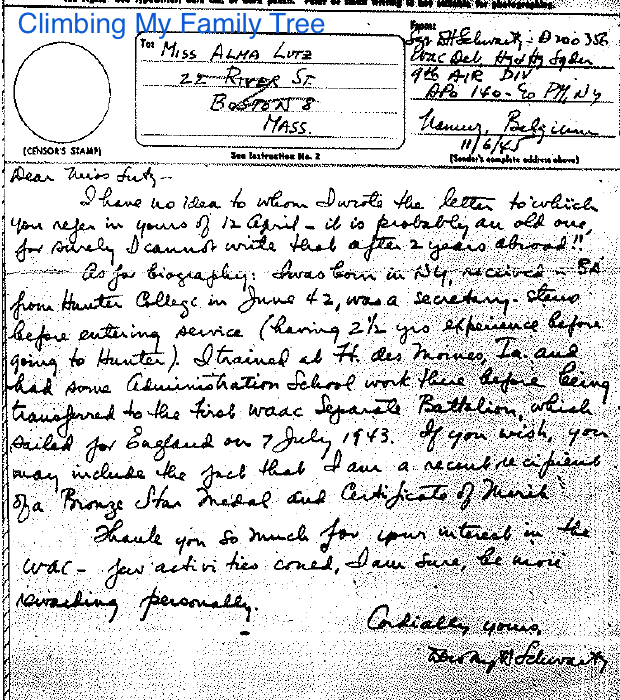 Climbing My Family Tree
To:
Miss Alma Lutz
22 River St.
Boston 8
Mass.
From:
Sgt D H Schwartz - A200356
WAC Det. Hq & Hq Sqdn
9th Air Div
APO 140 - c/o PM, NY
Namur, Belgium
11/6/45
(CENSOR'S STAMP)
See Instruction No. 2
(Sender's complete address above)
Dear Miss Lutz -
I have no idea to whom I wrote the letter to which
you refer in yours of 12 April - it is probably an old one,
for surely I cannot write that after 2 years abroad!!
As for biography: I was born in NY, received - BA
from Hunter College in June 42, was a secretary-steno
before entering service (having 2½ yrs experience before
going to Hunter). I trained at Ft. des Moines, Ia. and
had some Administration School work there before being
transferred to the First WAAC Separate Battalion, which
sailed for England on 7 July 1943. If you wish, you
may include the fact that I am a recent recipient
of a Bronze Star Medal and Certificate of Merit
Thank you so much for your interest in the
WAC - few activities could, I am sure, be more
rewarding personally.
Cordially yours,
Dorothy H Schwartz